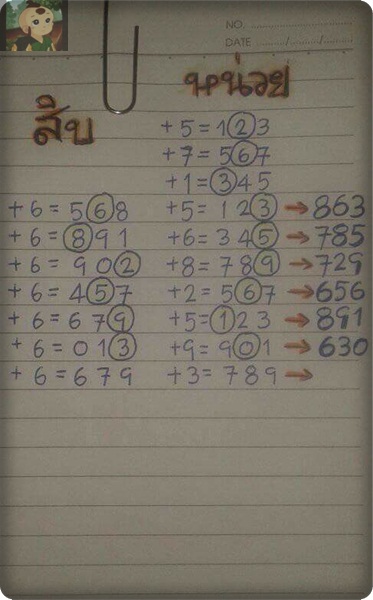 NO.
DATE ......../......../........
สิบ หน่วย
+5=123
+7=567
+1=345
+6=568 +5=123→863
+6=891 +6=345→785
+6=902 +8=789→729
+6=457 +2=567→656
+6=679 +5=123→891
+6=013 +9=901→630
+6=679 +3=789→